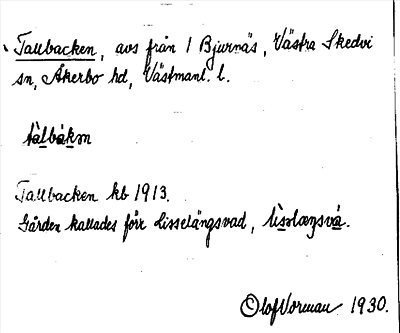 Tallbacken, avs från 1 Bjurnäs, Västra Skedvi
sn, Åkerbo hd, Västmanl. l.
tàlbàkɷn
Tallbacken kb 1913.
Gården kallades förr Lisselängsvad, lìsslæŋsvà.
Olof Vorman 1930.